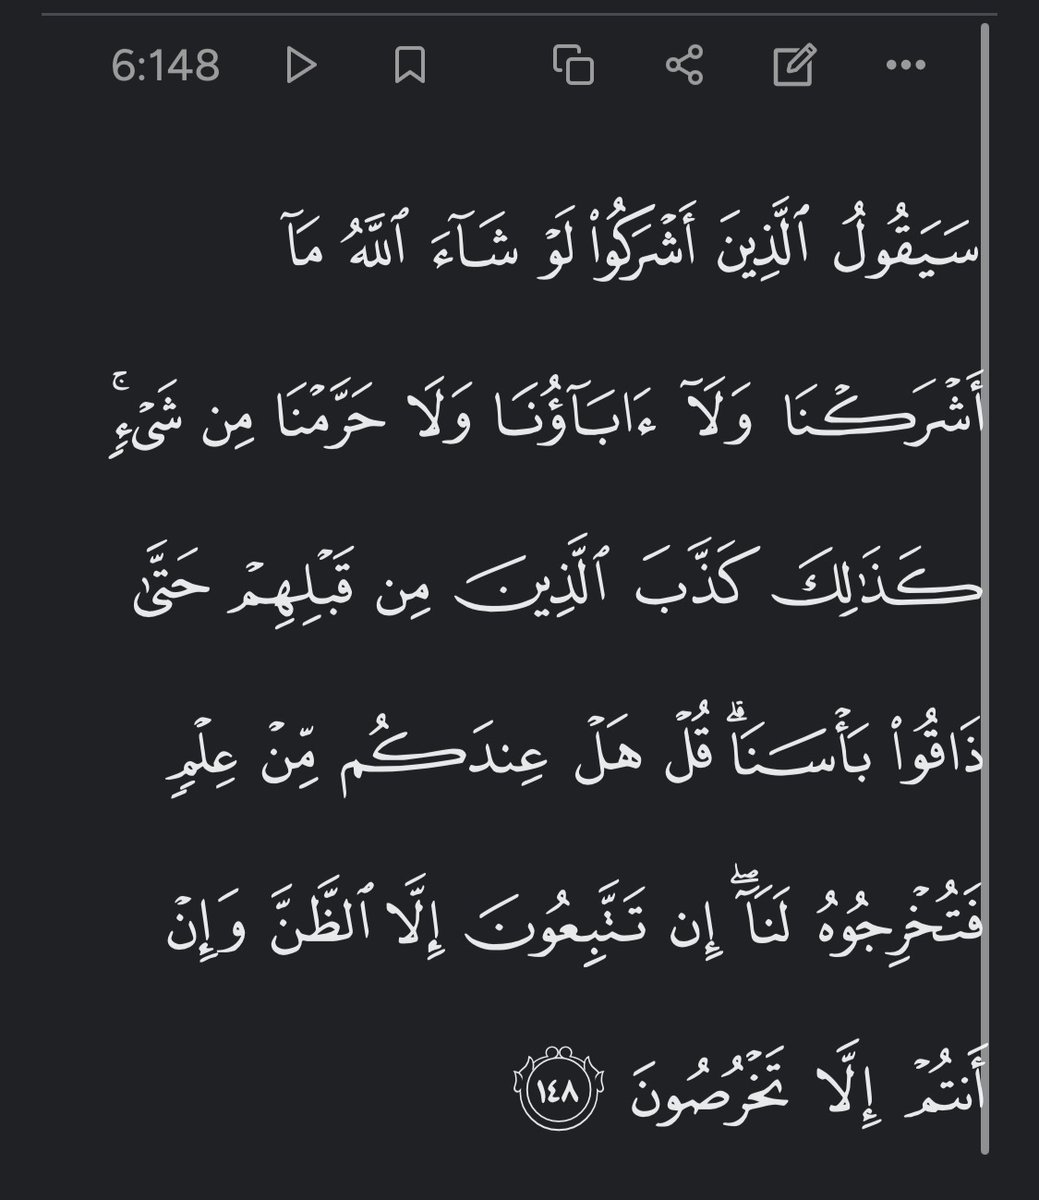 6:148
سَيَقُولُ ٱلَّذِينَ أَشْرَكُوا۟ لَوْ شَآءَ ٱللَّهُ مَآ
أَشْرَكْنَا وَلَآ ءَابَآؤُنَا وَلَا حَرَّمْنَا مِن شَىْءٍۢ ۚ
كَذَٰلِكَ كَذَّبَ ٱلَّذِينَ مِن قَبْلِهِمْ حَتَّىٰ
ذَاقُوا۟ بَأْسَنَا ۗ قُلْ هَلْ عِندَكُم مِّنْ عِلْمٍۢ
فَتُخْرِجُوهُ لَنَآ ۖ إِن تَتَّبِعُونَ إِلَّا ٱلظَّنَّ وَإِنْ
أَنتُمْ إِلَّا تَخْرُصُونَ ١٤٨